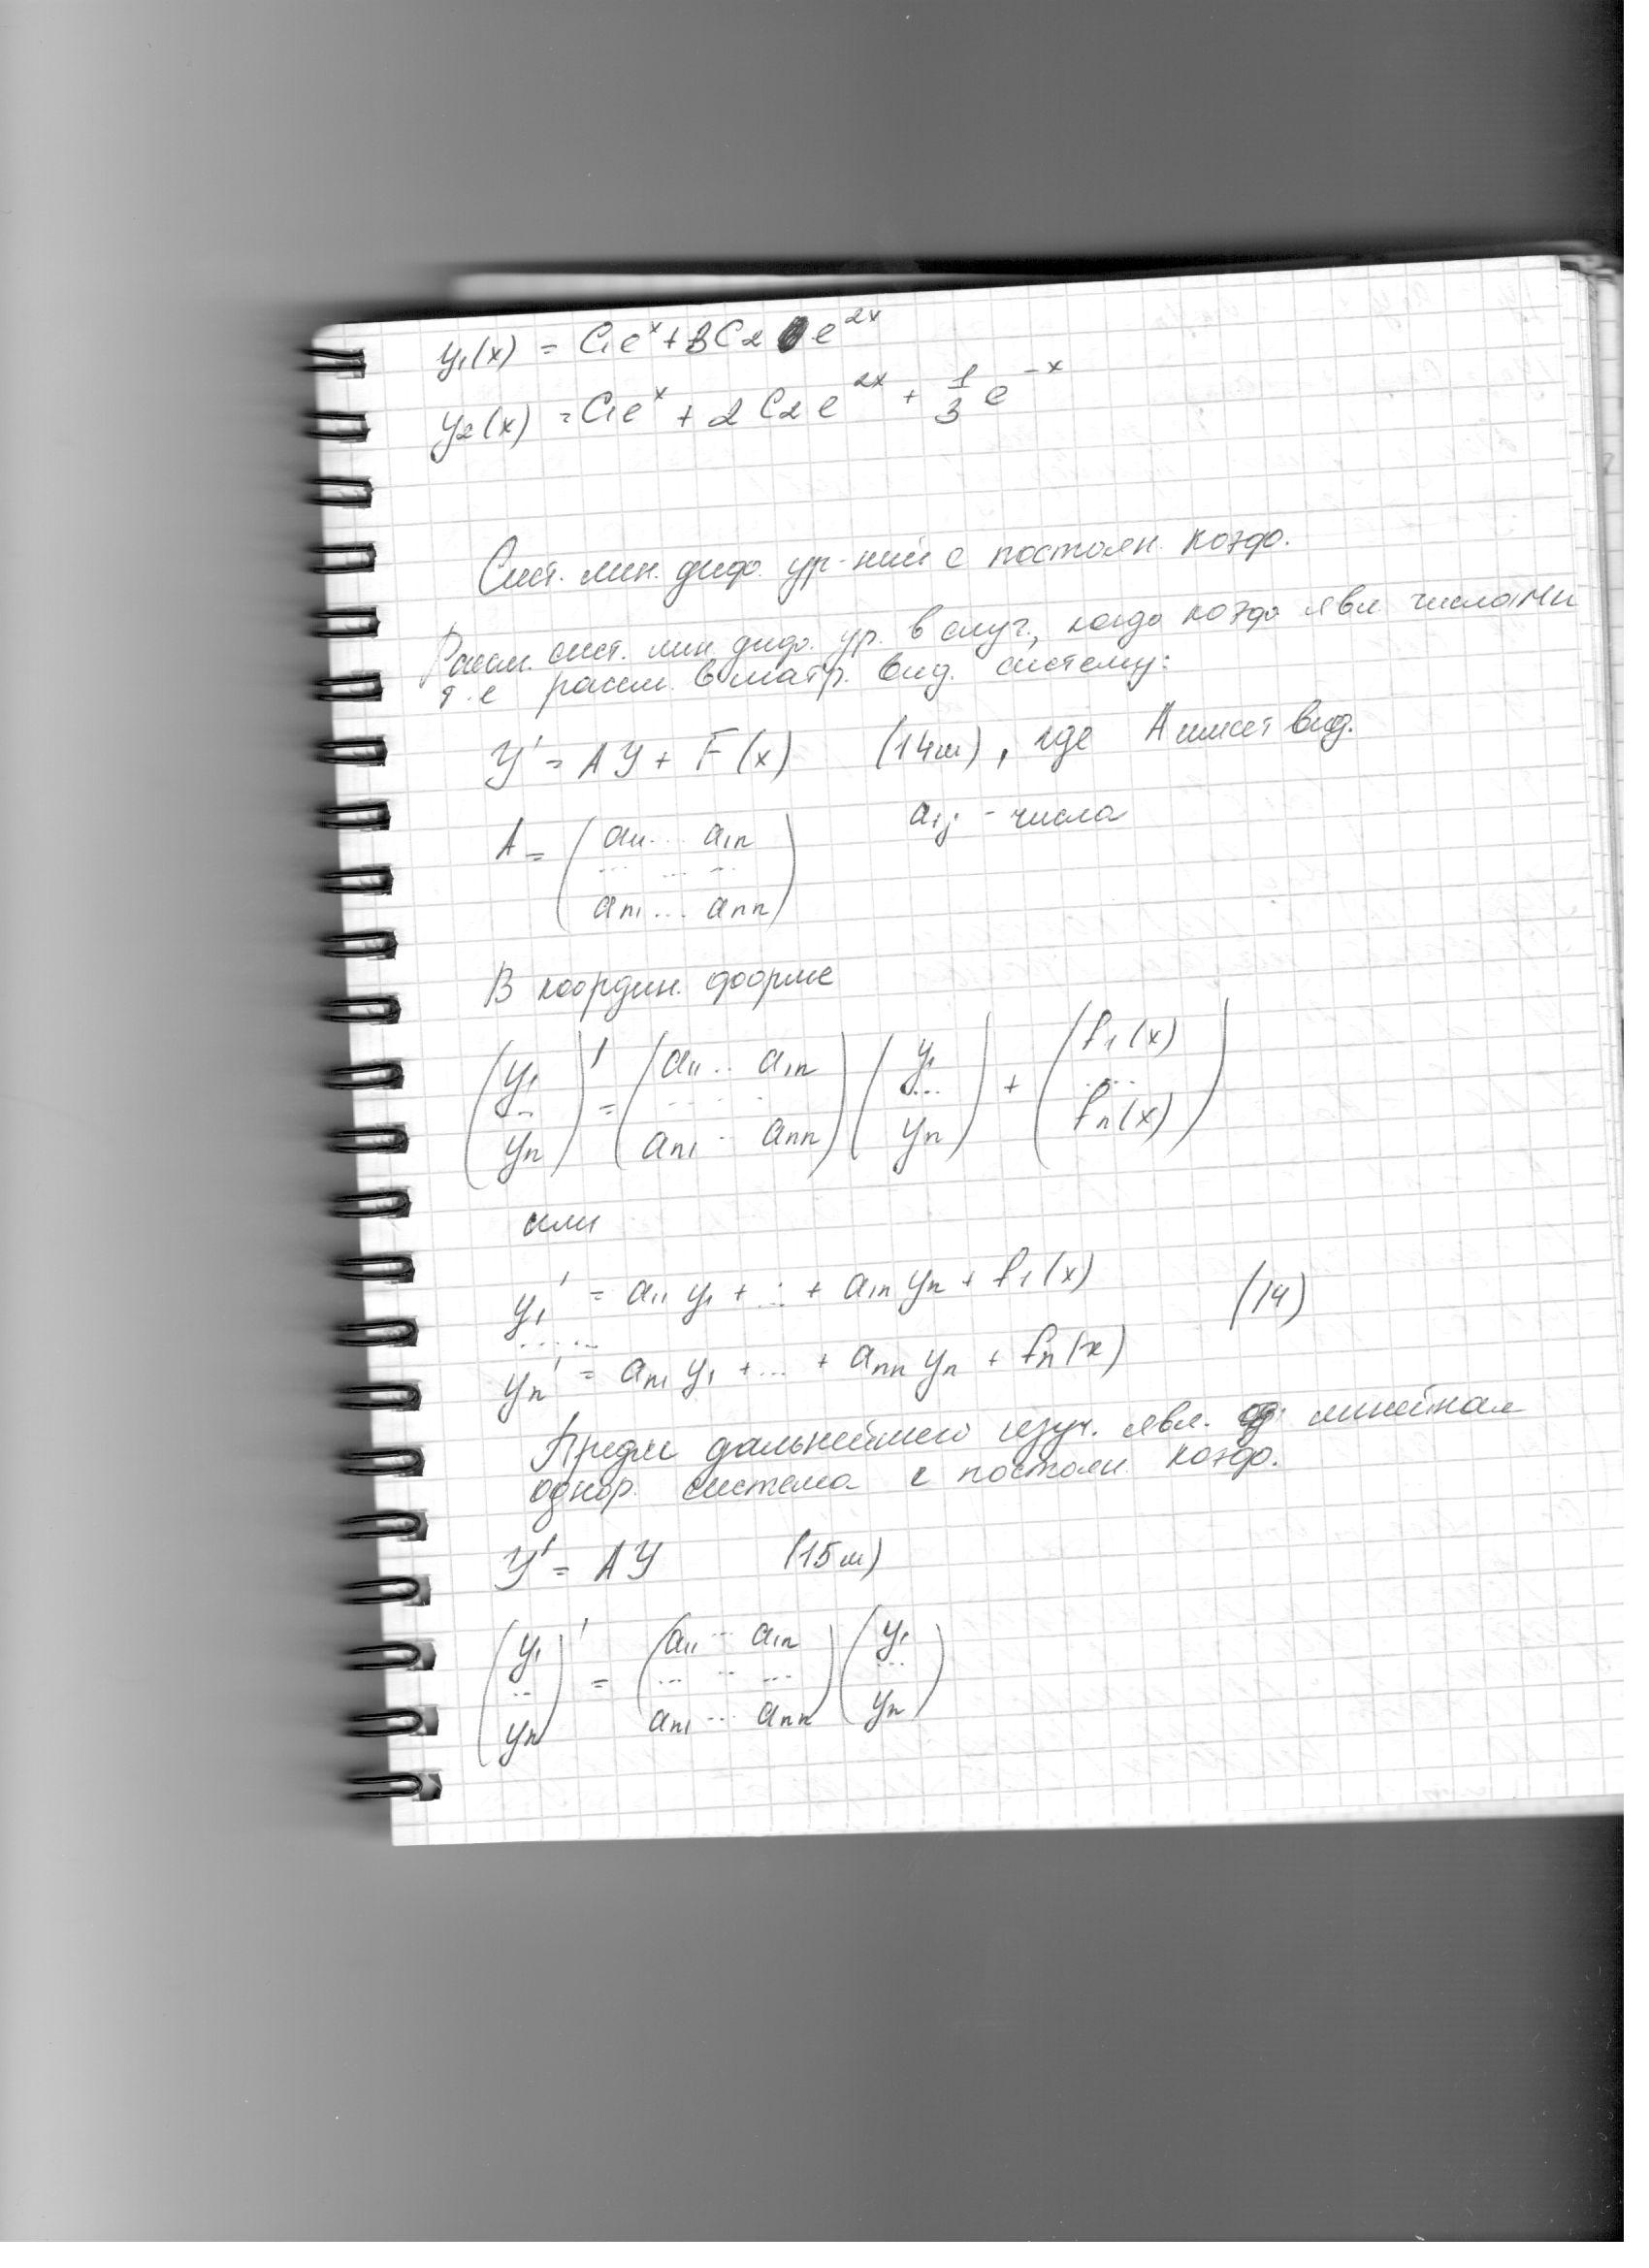 y₁(x) = C₁eˣ + 3C₂ e²ˣ
y₂(x) = C₁eˣ + 2C₂e²ˣ + 1/3 e⁻ˣ
Сист. лин. диф. ур-ний с постоян. коэф.
Рассм. сист. лин. диф. ур. в случ., когда коэф явл числами
т.е рассм. в матр. вид. систему:
Y' = AY + F(x) (14м), где A имеет вид.
A = ( a₁₁... a₁ₙ aᵢⱼ - числа
... ... ...
aₙ₁ ... aₙₙ )
В координ. форме
( y₁ ... yₙ )' = ( a₁₁ .. a₁ₙ ..... aₙ₁ .. aₙₙ ) ( y₁ ... yₙ ) + ( f₁(x) ..... fₙ(x) )
или
y₁' = a₁₁ y₁ + ... + a₁ₙ yₙ + f₁(x) (14)
......
yₙ' = aₙ₁ y₁ + ... + aₙₙ yₙ + fₙ(x)
Предм дальнейшего изуч. явл. линейная
однор. система с постоян. коэф.
Y' = AY (15м)
( y₁ .. yₙ )' = ( a₁₁ ... a₁ₙ ... ... ... aₙ₁ ... aₙₙ ) ( y₁ ... yₙ )